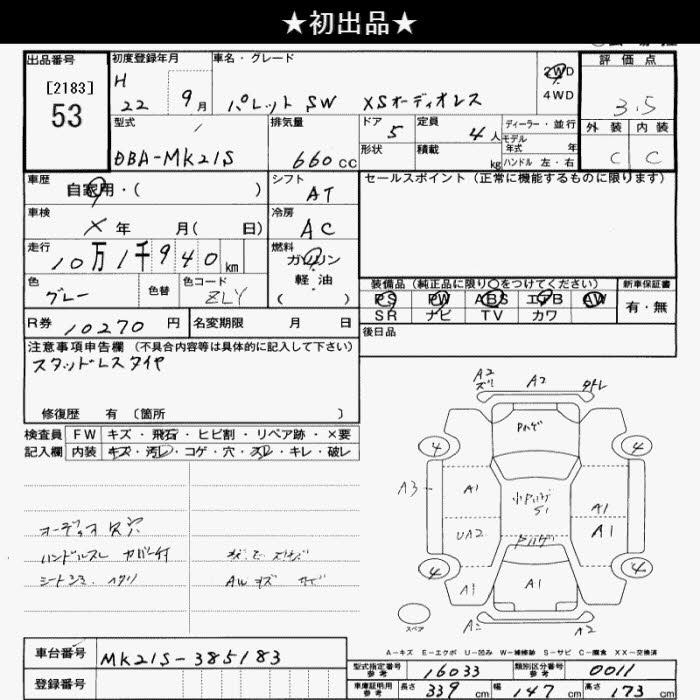 ★初出品★
出品番号
[2183]
53
初度登録年月
H
22 9月
車名・グレード
パレット SW XSオーディオレス
2WD
4WD
評価点
3.5
外装 内装
C C
型式
DBA-MK21S
排気量
660cc
ドア 5
形状
定員 4人
積載 kg
ディーラー・並行
モデル
年式 年
ハンドル 左・右
車歴
自家用・( )
シフト
AT
セールスポイント (正常に機能するものに限ります)
車検
× 年 月( 日)
冷房
AC
走行
10万1千940km
燃料
ガソリン
軽油
( )
色
グレー
色替
色コード
ZLY
装備品 (純正品に限り○をつけてください)
新車保証書
PS PW ABS エアB AW
有・無
SR ナビ TV カワ
R券 10270円
名変期限 月 日
後日品
注意事項申告欄 (不具合内容等は具体的に記入して下さい)
スタッドレスタイヤ
修復歴 有 〔箇所 〕
検査員 FW キズ・飛石・ヒビ割・リペア跡・×要
記入欄 内装 キズ・汚レ・コゲ・穴・スレ・キレ・破レ
オーディオ 欠 穴
ハンドルスレ カバー付
シートシミ ヘタリ
A2 A2
4 4
A3 A1 A1
UA2 A1
4 4
A1 A1
スペア
A2
A-キズ E-エクボ U-凹み W-補修跡 S-サビ C-腐食 XX-交換済
車台番号
MK21S-385183
登録番号
型式指定番号
参考
16033
類別区分番号
参考
0011
車庫証明用
参考
長さ 339cm 幅 147cm 高さ 173cm